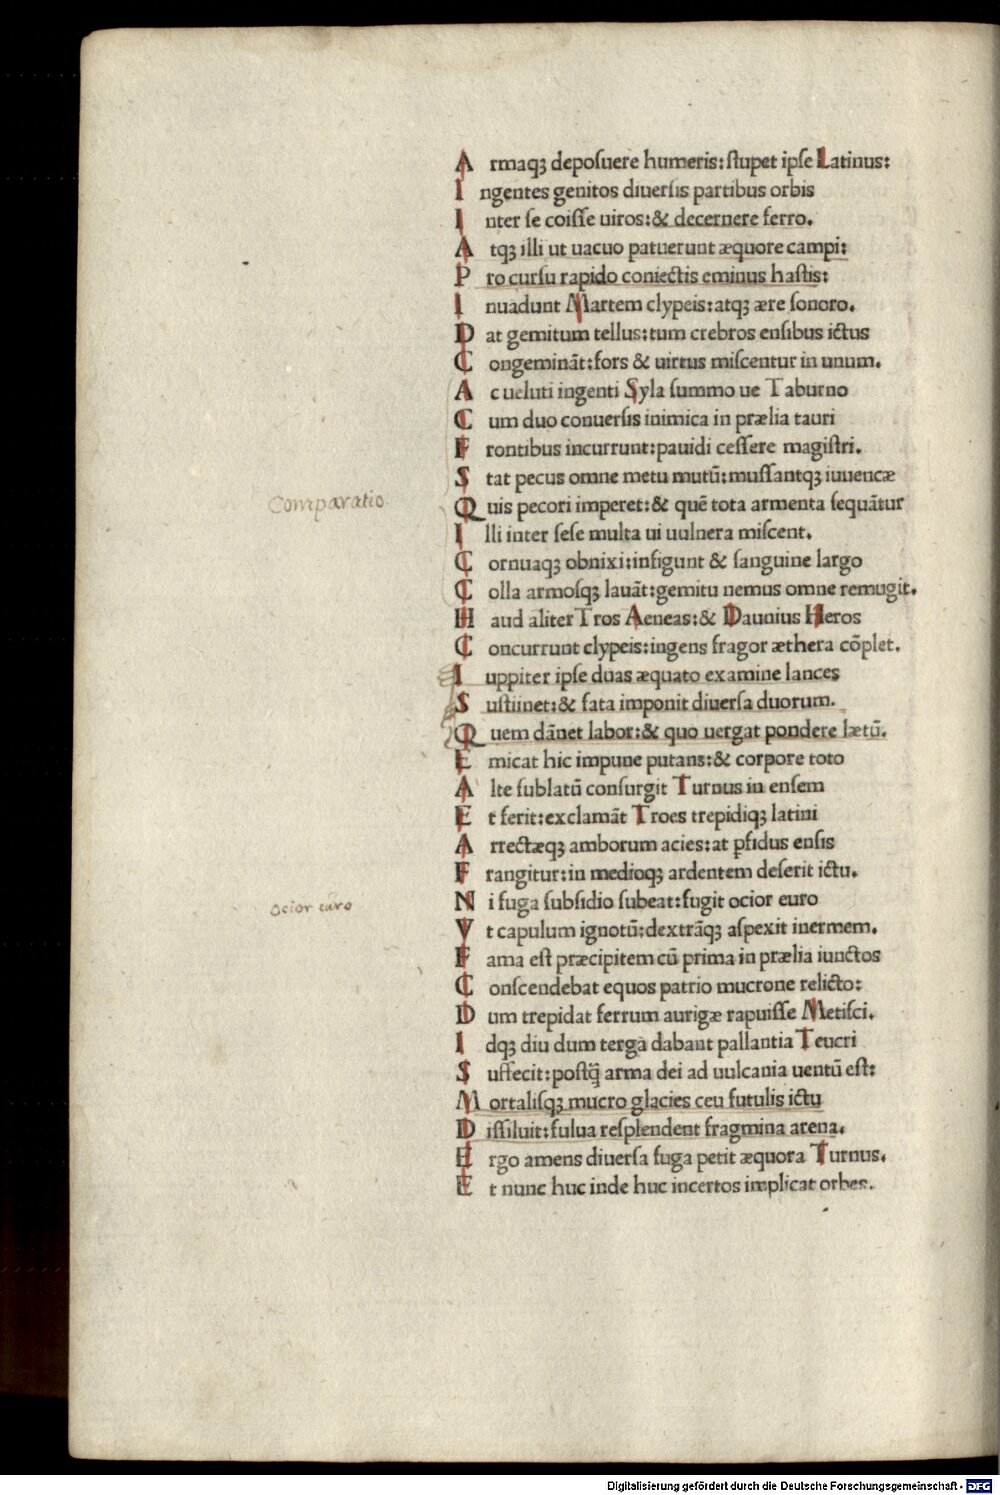 Armaqꝫ deposuere humeris: stupet ipse Latinus:
Ingentes genitos diuersis partibus orbis
Inter se coisse uiros: & decernere ferro.
Atqꝫ illi ut uacuo patuerunt æquore campi:
Pro cursu rapido coniectis eminus hastis:
Inuadunt Martem clypeis: atqꝫ ære sonoro.
Dat gemitum tellus: tum crebros ensibus ictus
Congeminãt: fors & uirtus miscentur in unum.
Ac ueluti ingenti Syla summo ue Taburno
Cum duo conuersis inimica in prælia tauri
Frontibus incurrunt: pauidi cessere magistri.
Stat pecus omne metu mutũ: mussantqꝫ iuuencæ
Comparatio
Quis pecori imperet: & quẽ tota armenta sequãtur
Illi inter sese multa ui uulnera miscent.
Cornuaqꝫ obnixi: infigunt & sanguine largo
Colla armosqꝫ lauãt: gemitu nemus omne remugit.
Haud aliter Tros Aeneas: & Daunius Heros
Concurrunt clypeis: ingens fragor æthera cõplet.
Iuppiter ipse duas æquato examine lances
Sustiinet: & fata imponit diuersa duorum.
Quem dãnet labor: & quo uergat pondere lætũ.
Emicat hic impune putans: & corpore toto
Alte sublatũ consurgit Turnus in ensem
Et ferit: exclamãt Troes trepidiqꝫ latini
Arrectæqꝫ amborum acies: at ꝑfidus ensis
Frangitur: in medioqꝫ ardentem deserit ictu.
Ni fuga subsidio subeat: fugit ocior euro
ocior euro
Vt capulum ignotũ: dextrãqꝫ aspexit inermem.
Fama est præcipitem cũ prima in prælia iunctos
Conscendebat equos patrio mucrone relicto:
Dum trepidat ferrum aurigæ rapuisse Metisci.
Idqꝫ diu dum terga dabant pallantia Teucri
Suffecit: postq̃ arma dei ad uulcania uentũ est:
Mortalisqꝫ mucro glacies ceu futulis ictu
Dissiluit: fulua resplendent fragmina arena.
Ergo amens diuersa fuga petit æquora Turnus.
Et nunc huc inde huc incertos implicat orbes.
Digitalisierung gefördert durch die Deutsche Forschungsgemeinschaft - DFG